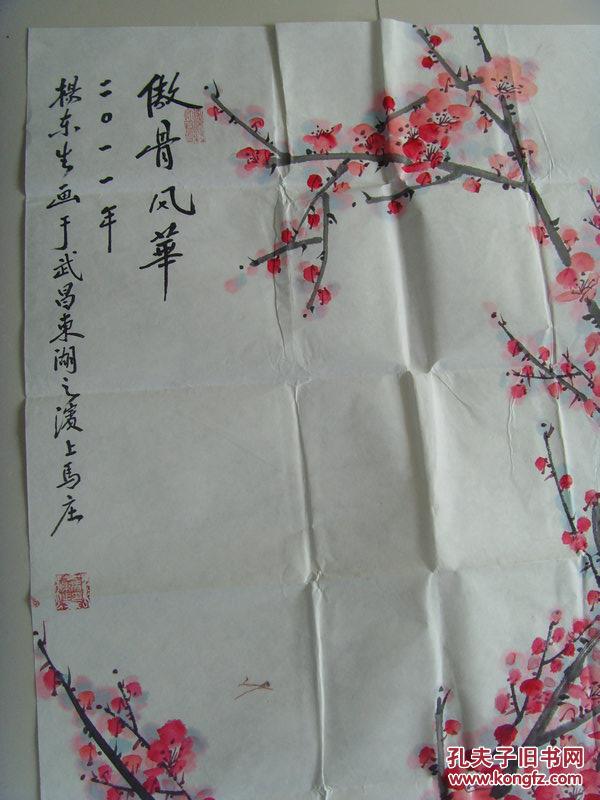 傲骨风華
二〇一一年
樱东生画于武昌東湖之濱上馬庄
孔夫子旧书网
www.kongfz.com